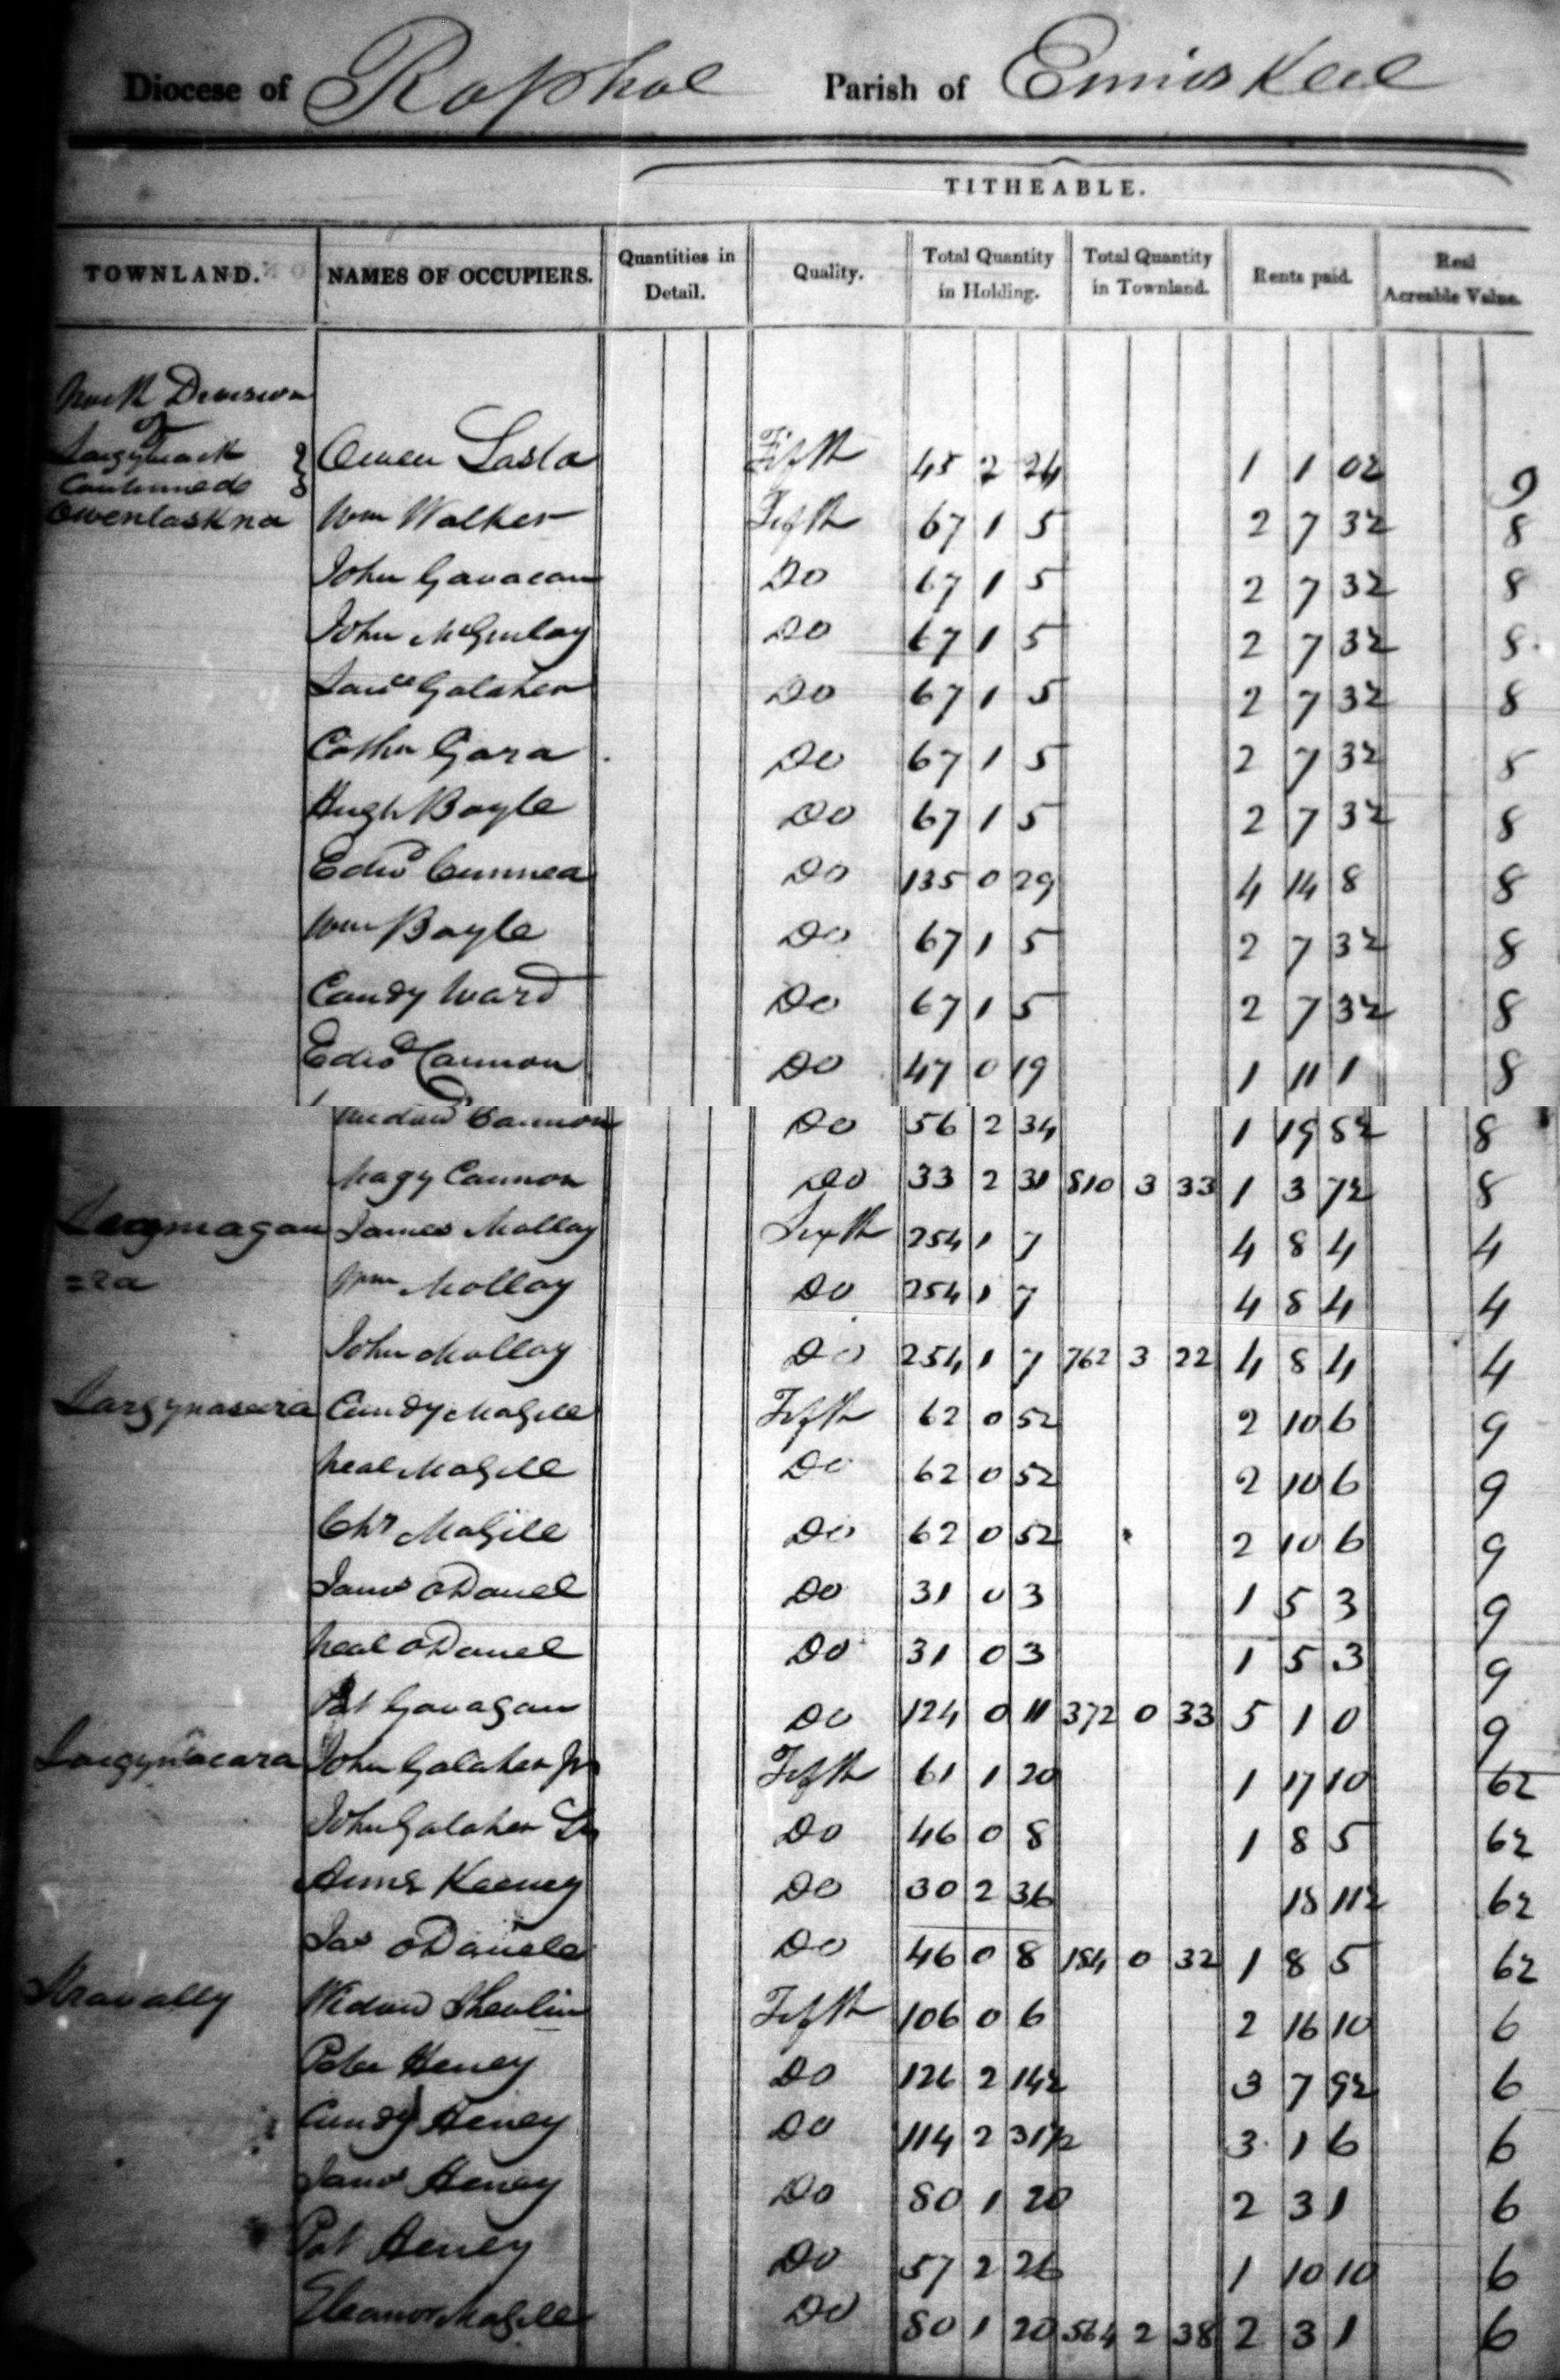 Diocese of Raphoe Parish of Enniskeel
TITHEABLE.
TOWNLAND. NAMES OF OCCUPIERS. Quantities in Detail. Quality. Total Quantity in Holding. Total Quantity in Townland. Rents paid. Real Acreable Value.
North Division
of
Owen Fifth 45 2 24 1 1 02 9
Continued
Owenlaskna Wm Walker Fifth 67 1 5 2 7 32 8
John Gavacan Do 67 1 5 2 7 32 8
John McGinlay Do 67 1 5 2 7 32 8
Galaher Do 67 1 5 2 7 32 8
Gara Do 67 1 5 2 7 32 8
Hugh Boyle Do 67 1 5 2 7 32 8
Edwd Cunnea Do 135 0 29 4 14 8 8
Wm Boyle Do 67 1 5 2 7 32 8
Condy Ward Do 67 1 5 2 7 32 8
Edwd Cannon Do 47 0 19 1 11 1 8
Widow Cannon Do 56 2 34 1 19 82 8
Magy Cannon Do 33 2 31 810 3 33 1 3 72 8
James Molloy Sixth 254 1 7 4 8 4 4
=ra Wm Molloy Do 254 1 7 4 8 4 4
John Molloy Do 254 1 7 762 3 22 4 8 4 4
Condy McGill Fifth 62 0 52 2 10 6 9
Neal McGill Do 62 0 52 2 10 6 9
Chr McGill Do 62 0 52 2 10 6 9
Jams ODonel Do 31 0 3 1 5 3 9
Neal ODonel Do 31 0 3 1 5 3 9
Pat Gavagan Do 124 0 11 372 0 33 5 1 0 9
Largynacara John Galaher Jr Fifth 61 1 20 1 17 10 62
John Galaher Sr Do 46 0 8 1 8 5 62
Keeney Do 30 2 36 18 112 62
Jas ODonell Do 46 0 8 184 0 32 1 8 5 62
Stravally Widow Shevlin Fifth 106 0 6 2 16 10 6
Peter Heney Do 126 2 142 3 7 92 6
Condy Heney Do 114 2 31½ 3 1 6 6
Jams Heney Do 80 1 20 2 3 1 6
Pat Heney Do 57 2 26 1 10 10 6
Eleanor McGill Do 80 1 20 564 2 38 2 3 1 6